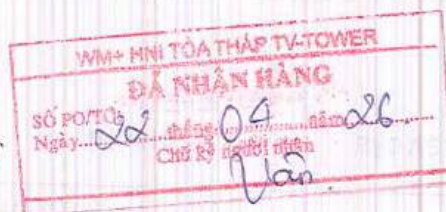 WM+ HNI TÒA THÁP TV-TOWER
ĐÃ NHẬN HÀNG
SỐ PO/TO:
Ngày...22...tháng...04...năm 26...
Chữ ký người nhận
Vân